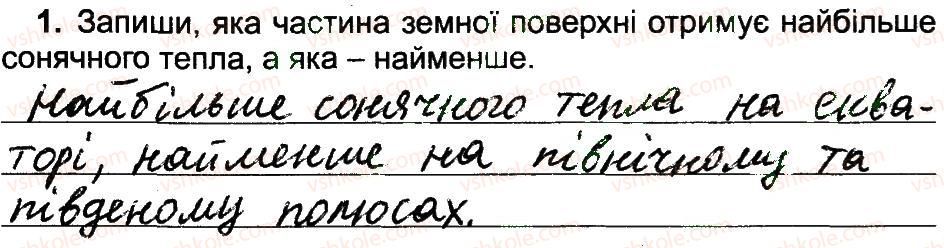 1. Запиши, яка частина земної поверхні отримує найбільше
сонячного тепла, а яка – найменше.
Найбільше сонячного тепла на еква-
торі, найменше на північному та
південому полюсах.